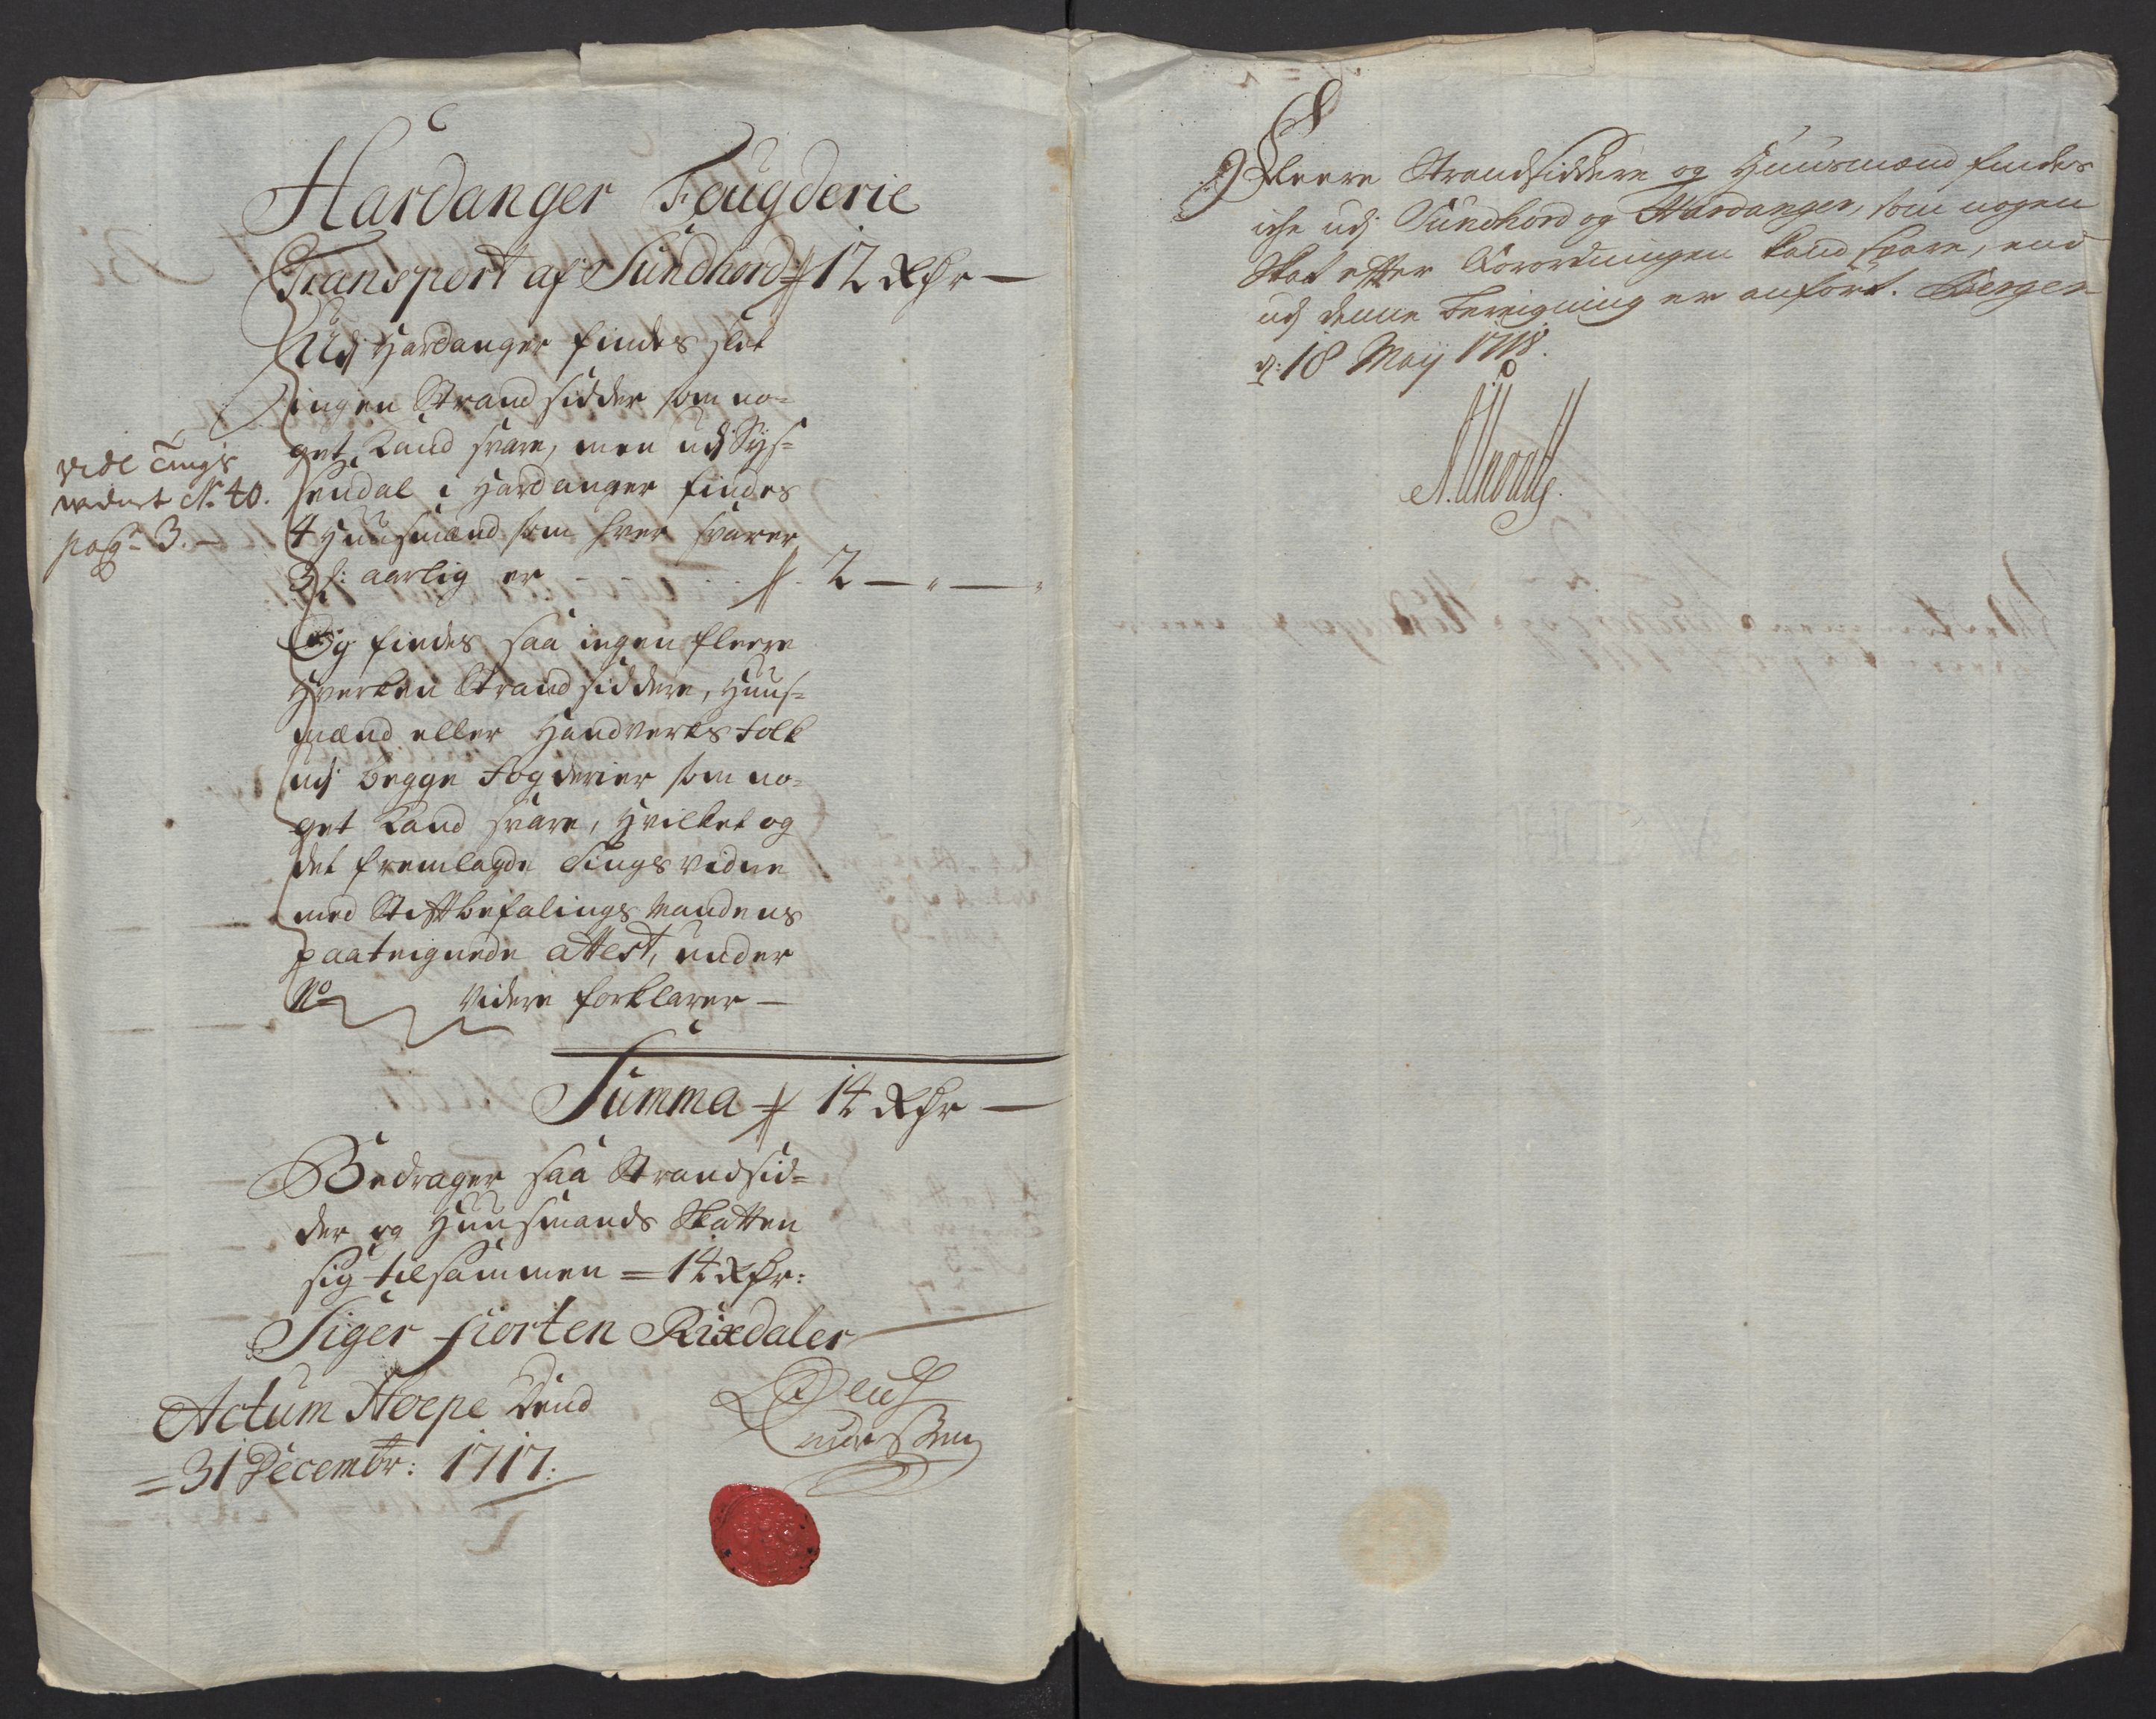 Hardanger Fougderie
Transport af Sundhord 12 Rdr —
Udj Hardanger findes slet
ingen Strand sidder som no=
get kand svare, men udj Sys=
sendal i Hardanger findes
vide Tings
vidnet N. 40.
pag. 3. —
4 Huusmænd som hver svarer
3 s: aarlig er 2 — " — "
Og findes saa ingen fleere
hverken Strandsiddere, Huus=
mænd eller Handverks folk
udj begge Fogderier som no=
get kand svare, hvilket og
det fremlagde Tings vidne
med Stiftbefalings Mandens
paateignede attest, under
No videre forklarer —
Summa 14 Rdr —
Bedrager saa Strandsid=
der og Huusmands Skatten
sig tilsammen = 14 Rdr:
Siger fiorten Rixdaler
Actum Hoepe dend
= 31 Decembr: 1717:
Fleere Strandsiddere og Huusmænd findes
iche udj Sundhord og Hardanger, som nogen
Skat efter Forordningen kand svare, end
udj denne Bereigning er anført. Bergen
d: 18 Maij 1718.